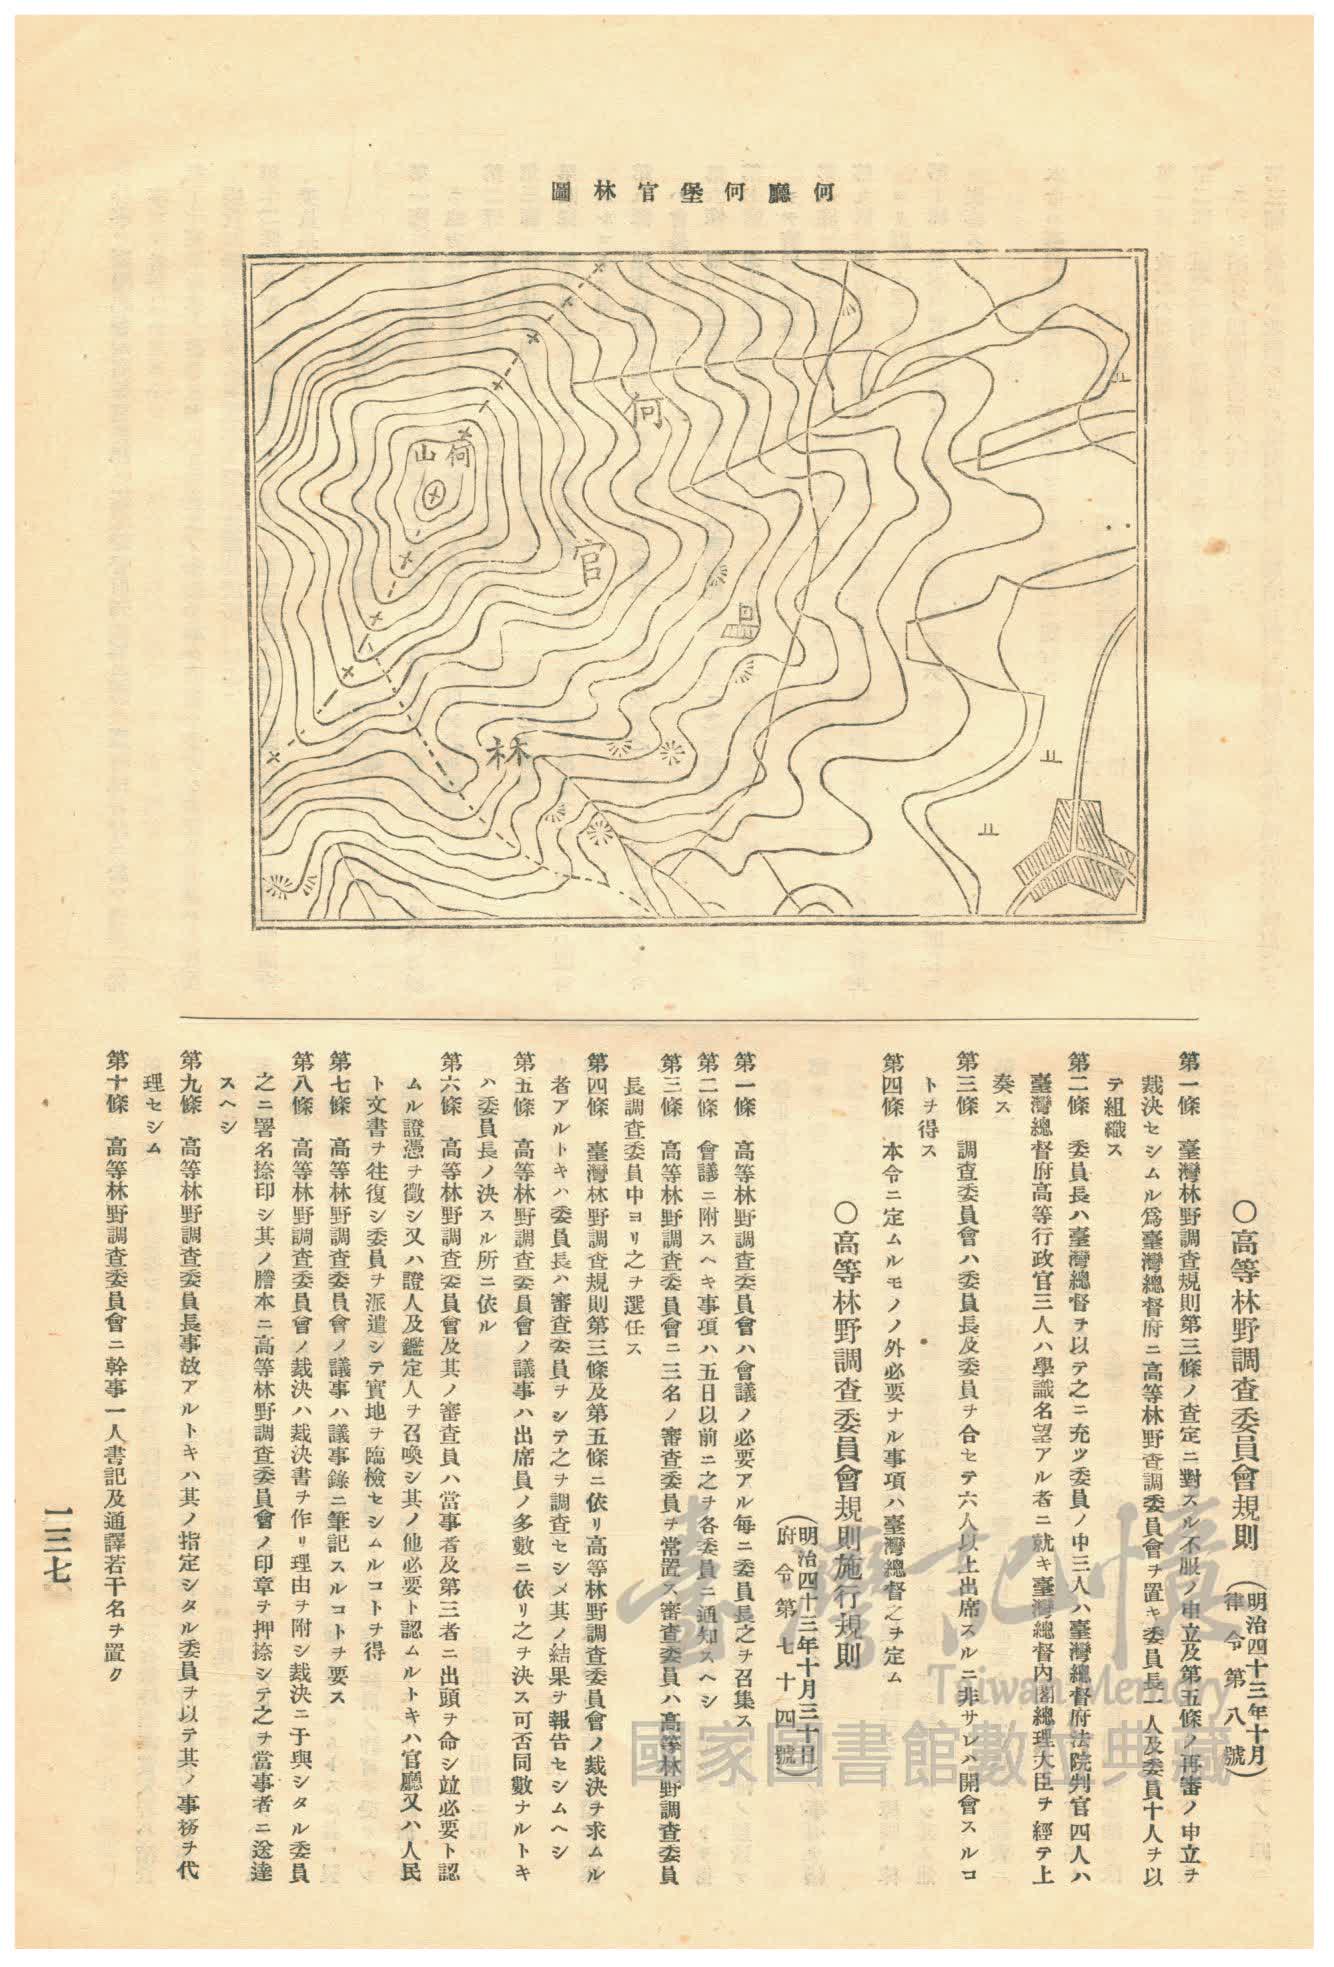 何廳何堡官林圖
何
何山
官
林
○高等林野調査委員會規則(明治四十三年十月律令第八號)
第一條 臺灣林野調査規則第三條ノ査定ニ對スル不服ノ申立及第五條ノ再審ノ申立ヲ
裁決セシムル爲臺灣總督府ニ高等林野査調委員會ヲ置キ委員長一人及委員十人ヲ以
テ組織ス
第二條 委員長ハ臺灣總督ヲ以テ之ニ充ツ委員ノ中三人ハ臺灣總督府法院判官四人ハ
臺灣總督府高等行政官三人ハ學識名望アル者ニ就キ臺灣總督內閣總理大臣ヲ經テ上
奏ス
第三條 調査委員會ハ委員長及委員ヲ合セテ六人以上出席スルニ非サレハ開會スルコ
トヲ得ス
第四條 本令ニ定ムルモノノ外必要ナル事項ハ臺灣總督之ヲ定ム
○高等林野調査委員會規則施行規則
(明治四十三年十月三十日府令第七十四號)
第一條 高等林野調査委員會ハ會議ノ必要アル每ニ委員長之ヲ召集ス
第二條 會議ニ附スヘキ事項ハ五日以前ニ之ヲ各委員ニ通知スヘシ
第三條 高等林野調査委員會ニ三名ノ審査委員ヲ常置ス審査委員ハ高等林野調査委員
長調査委員中ヨリ之ヲ選任ス
第四條 臺灣林野調査規則第三條及第五條ニ依リ高等林野調査委員會ノ裁決ヲ求ムル
者アルトキハ委員長ハ審査委員ヲシテ之ヲ調査セシメ其ノ結果ヲ報告セシムヘシ
第五條 高等林野調査委員會ノ議事ハ出席員ノ多數ニ依リ之ヲ決ス可否同數ナルトキ
ハ委員長ノ決スル所ニ依ル
第六條 高等林野調査委員會及其ノ審査員ハ當事者及第三者ニ出頭ヲ命シ竝必要ト認
ムル證憑ヲ徵シ又ハ證人及鑑定人ヲ召喚シ其ノ他必要ト認ムルトキハ官廳又ハ人民
ト文書ヲ往復シ委員ヲ派遣シテ實地ヲ臨檢セシムルコトヲ得
第七條 高等林野調査委員會ノ議事ハ議事錄ニ筆記スルコトヲ要ス
第八條 高等林野調査委員會ノ裁決ハ裁決書ヲ作リ理由ヲ附シ裁決ニ于與シタル委員
之ニ署名捺印シ其ノ謄本ニ高等林野調査委員會ノ印章ヲ押捺シテ之ヲ當事者ニ送達
スヘシ
第九條 高等林野調査委員長事故アルトキハ其ノ指定シタル委員ヲ以テ其ノ事務ヲ代
理セシム
第十條 高等林野調査委員會ニ幹事一人書記及通譯若干名ヲ置ク
一三七
臺灣記憶
Taiwan Memory
國家圖書館數位典藏